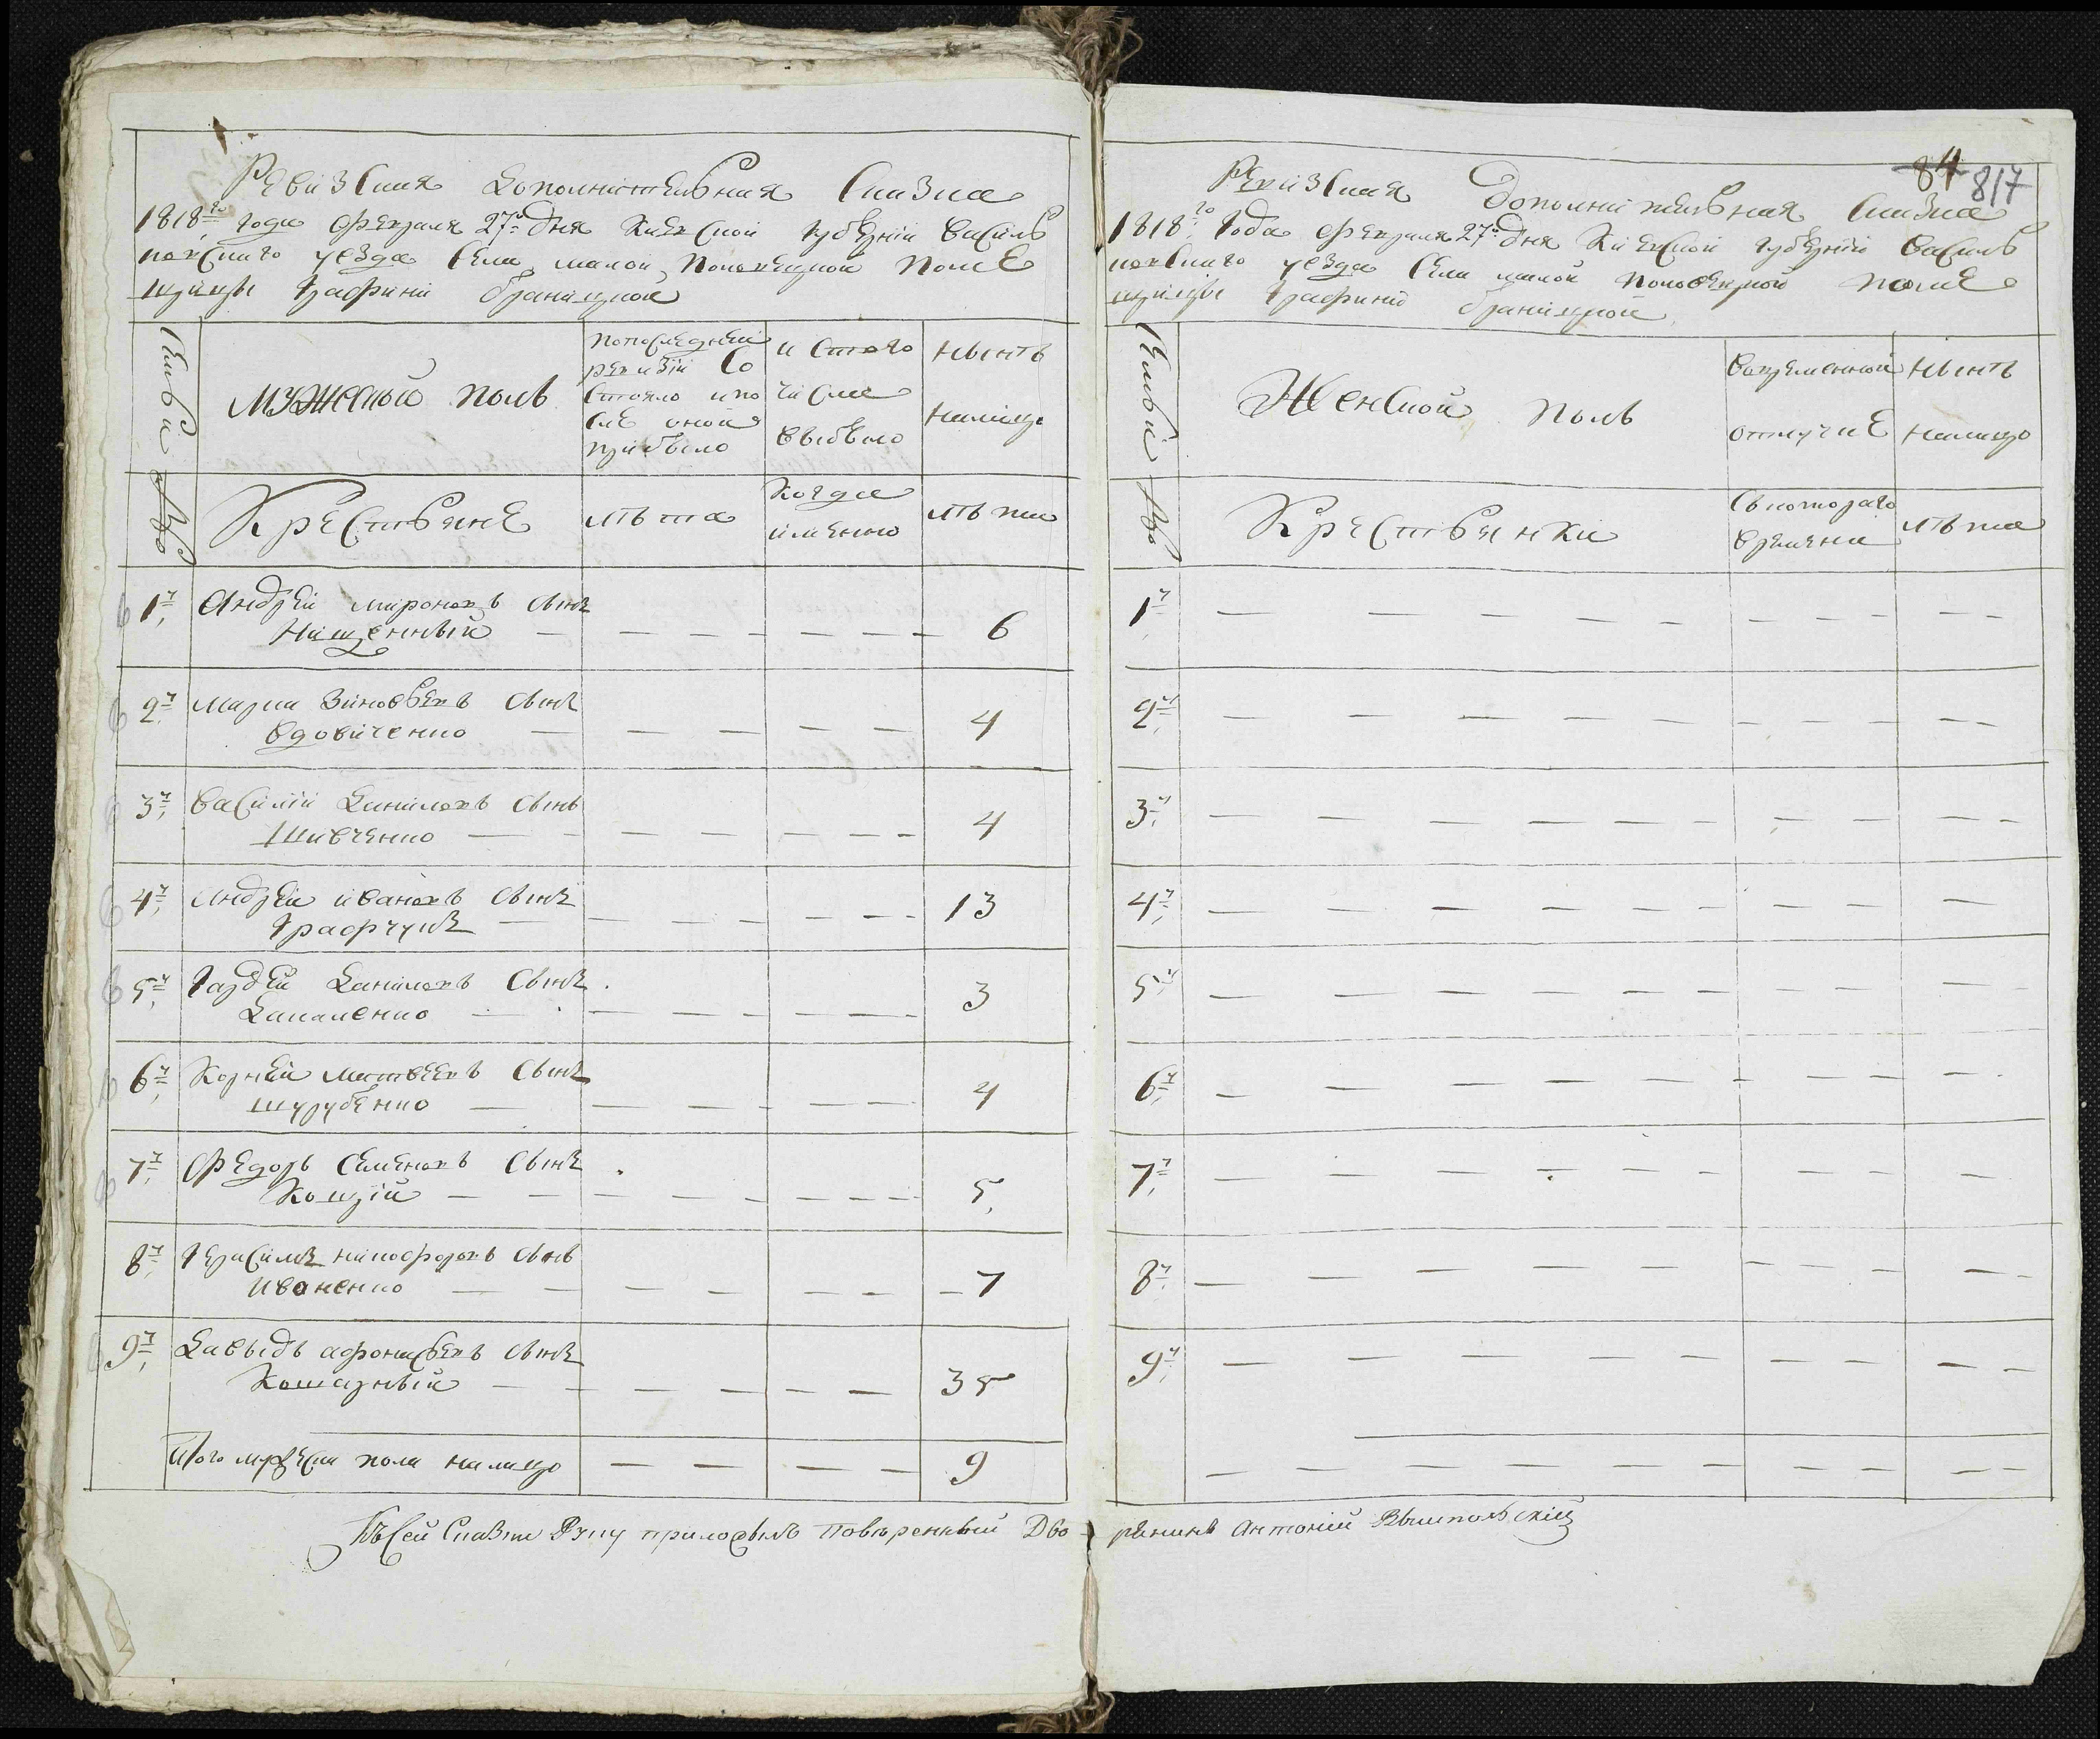 Ревизская дополнительная сказка
1818го года февраля 27го дня Киевской губернии Василь
ковскаго уезда села малой Половецкой поме
щицы графини браницкой
мужеской полъ
попоследней
ревизіи со
стояло ипо
сле оной
прибыло
и стого
числа
выбыло
нынѣ
налицо
Семьи
№о
Крестьяне
лѣта
когда
именно
лѣта
1й андрей мироновъ сынъ
Нищенный — 6
2й марка Зиновьевъ сынъ
вдовиченко — 4
3й василій даниловъ сынъ
Шивченко — 4
4й андрей ивановъ сынъ
графчукъ — 13
5й гардей даниловъ сынъ
3
6й Корней матвеевъ сынъ
шурубенко — 4
7й федоръ семеновъ сынъ
5
8й герасимъ никифоровъ сынъ
иваненко — 7
9й давыдъ афонасьевъ сынъ
Кошарный — 35
Итого мужеска пола налицо — 9
84 817
Ревизская дополнительная сказка
1818го года февраля 27го дня Киевской губерніи Василь
ковскаго уезда села малой половецкой поме
щицы графини браницкой
Семьи
№о
Женской полъ
вовременной
отлучке
нынѣ
налицо
Крестьянки
съ котораго
времени
лѣта
1й
2й
3й
4й
5й
6й
7й
8й
9й
Къ сей сказки руку приложилъ поверенный Дво рянинъ Антоній Вышпольскій